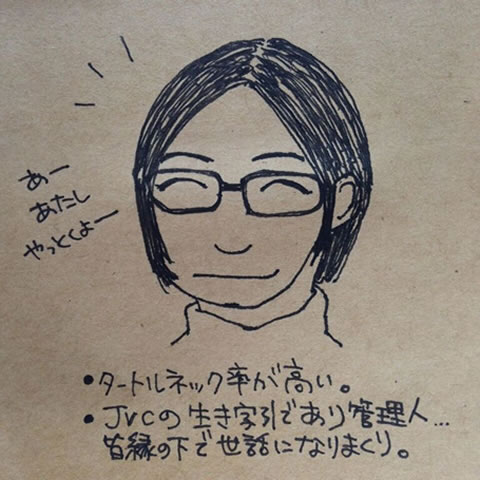 あー
あたし
やっとくよー
• タートルネック率が高い。
• JVCの生き字引であり管理人...
皆縁の下で世話になりまくり。